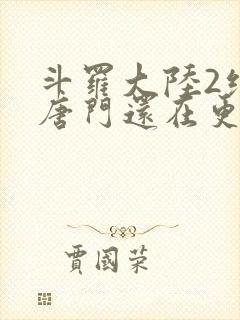 斗羅大陸2
唐門還在更
賈國荣